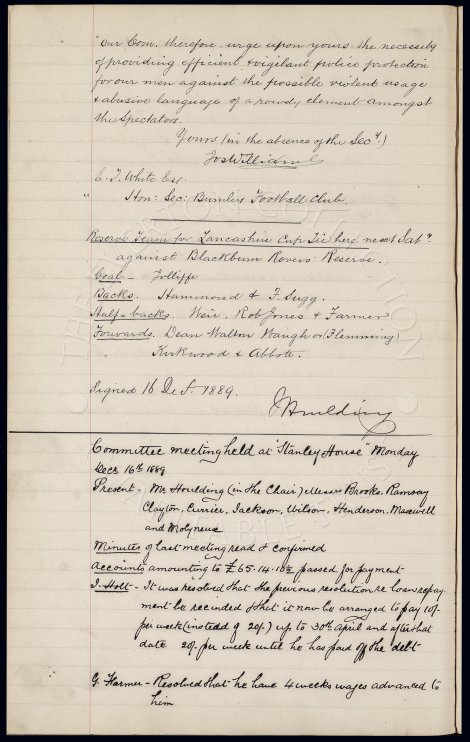 "Our Com. therefore, urge upon yours the necessity
of providing efficient & vigilant police protection
for our men against the possible violent usage
& abusive language of a rowdy element amongst
the Spectators.
Yours (in the absence of the Secy.)
Jos Williams
E. J. White Esq.
Hon: Sec: Burnley Football Club.
Reserve Team for Lancashire Cup Tie here next Saty.
against Blackburn Rovers Reserve.
Goal - Jolliffe
Backs. Hammond & F. Sugg.
Half-backs. Weir. Rob Jones & Farmer
Forwards. Dean Walton Waugh or (Flemming)
Kirkwood & Abbott.
Signed 16 Dec. 1889.
J Houlding
Committee meeting held at "Stanley House" Monday
Decr 16th 1889
Present - Mr Houlding (in the Chair) Messrs Brooks, Ramsay
Clayton, Currier, Jackson, Wilson, Henderson, Maxwell
and Molyneux
Minutes of last meeting read & confirmed
Accounts amounting to £65-14-10½ passed for payment
J. Holt - It was resolved that the previous resolution re loan repay
ment be recinded & that it now be arranged to pay 10/-
per week (instead of 20/-) up to 30th April and after that
date 20/- per week until he has paid off the debt
G. Farmer - Resolved that he have 4 weeks wages advanced to
him